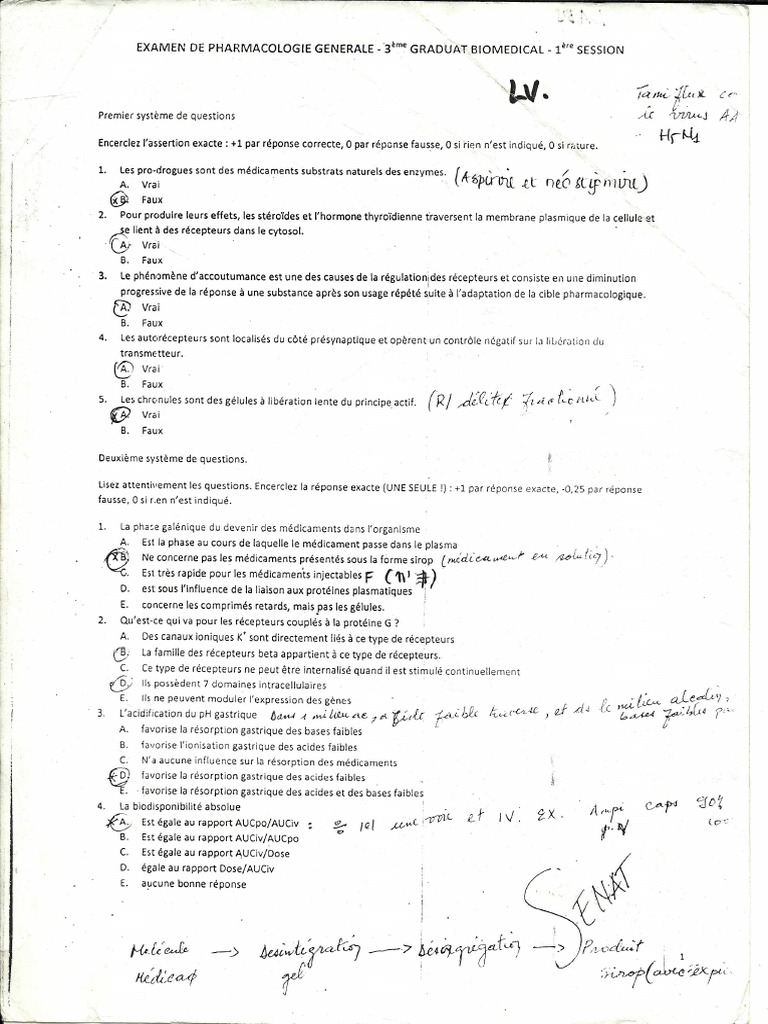 EXAMEN DE PHARMACOLOGIE GENERALE - 3ème GRADUAT BIOMEDICAL - 1ère SESSION
LV.
Tamiflux
virus
H5N1
Premier système de questions
Encerclez l'assertion exacte : +1 par réponse correcte, 0 par réponse fausse, 0 si rien n'est indiqué, 0 si rature.
1. Les pro-drogues sont des médicaments substrats naturels des enzymes. (Aspirine et néostigmine)
A. Vrai
B. Faux
2. Pour produire leurs effets, les stéroïdes et l'hormone thyroïdienne traversent la membrane plasmique de la cellule et
se lient à des récepteurs dans le cytosol.
A. Vrai
B. Faux
3. Le phénomène d'accoutumance est une des causes de la régulation des récepteurs et consiste en une diminution
progressive de la réponse à une substance après son usage répété suite à l'adaptation de la cible pharmacologique.
A. Vrai
B. Faux
4. Les autorécepteurs sont localisés du côté présynaptique et opèrent un contrôle négatif sur la libération du
transmetteur.
A. Vrai
B. Faux
5. Les chronules sont des gélules à libération lente du principe actif. (R/ fractionné)
A. Vrai
B. Faux
Deuxième système de questions.
Lisez attentivement les questions. Encerclez la réponse exacte (UNE SEULE !) : +1 par réponse exacte, -0,25 par réponse
fausse, 0 si rien n'est indiqué.
1. La phase galénique du devenir des médicaments dans l'organisme
A. Est la phase au cours de laquelle le médicament passe dans le plasma
B. Ne concerne pas les médicaments présentés sous la forme sirop (médicament en solution).
C. Est très rapide pour les médicaments injectables F
D. est sous l'influence de la liaison aux protéines plasmatiques
E. concerne les comprimés retards, mais pas les gélules.
2. Qu'est-ce qui va pour les récepteurs couplés à la protéine G ?
A. Des canaux ioniques K⁺ sont directement liés à ce type de récepteurs
B. La famille des récepteurs beta appartient à ce type de récepteurs.
C. Ce type de récepteurs ne peut être internalisé quand il est stimulé continuellement
D. Ils possèdent 7 domaines intracellulaires
E. Ils ne peuvent moduler l'expression des gènes
3. L'acidification du pH gastrique Dans faible traverse, et ds le milieu alcalin,
bases faibles
A. favorise la résorption gastrique des bases faibles
B. favorise l'ionisation gastrique des acides faibles
C. N'a aucune influence sur la résorption des médicaments
D. favorise la résorption gastrique des acides faibles
E. favorise la résorption gastrique des acides et des bases faibles
4. La biodisponibilité absolue
A. Est égale au rapport AUCpo/AUCiv : une voie et IV. Ex. Ampi caps 90%
B. Est égale au rapport AUCiv/AUCpo
C. Est égale au rapport AUCiv/Dose
D. égale au rapport Dose/AUCiv
E. aucune bonne réponse
SENAT
Molécule → Desintégration → Désagrégation → Produit
gel sirop